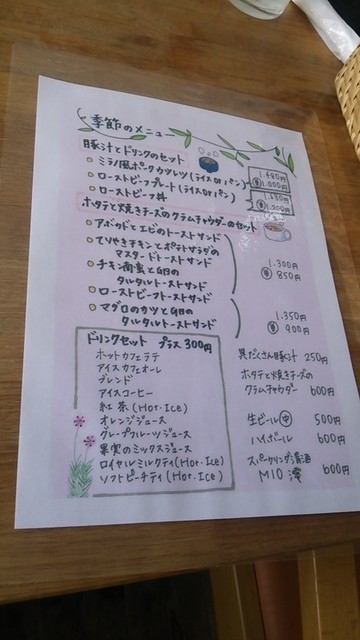 季節のメニュー
豚汁とドリンクのセット
ミラノ風ポークカツレツ(ライスorパン)
ローストビーフプレート(ライスorパン)
ローストビーフ丼
1.480円
単 1.000円
1.680円
単 1.200円
ホタテと焼きチーズのクラムチャウダーのセット
アボカドとエビのトーストサンド
てりやきチキンとポテトサラダの
マスタードトーストサンド
チキン南蛮と
タルタルトーストサンド
1.300円
単 850円
ローストビーフトーストサンド
マグロのカツと
タルタルトーストサンド
1.350円
単 900円
ドリンクセット プラス300円
ホットカフェラテ
アイスカフェオーレ
ブレンド
アイスコーヒー
紅茶(Hot.Ice)
オレンジジュース
グレープフルーツジュース
果実のミックスジュース
ロイヤルミルクティ(Hot.Ice)
ソフトピーチティ(Hot.Ice)
具だくさん豚汁 250円
ホタテと焼きチーズの
クラムチャウダー 600円
生ビール中 500円
ハイボール 600円
スパークリング清酒
MIO 澪 600円